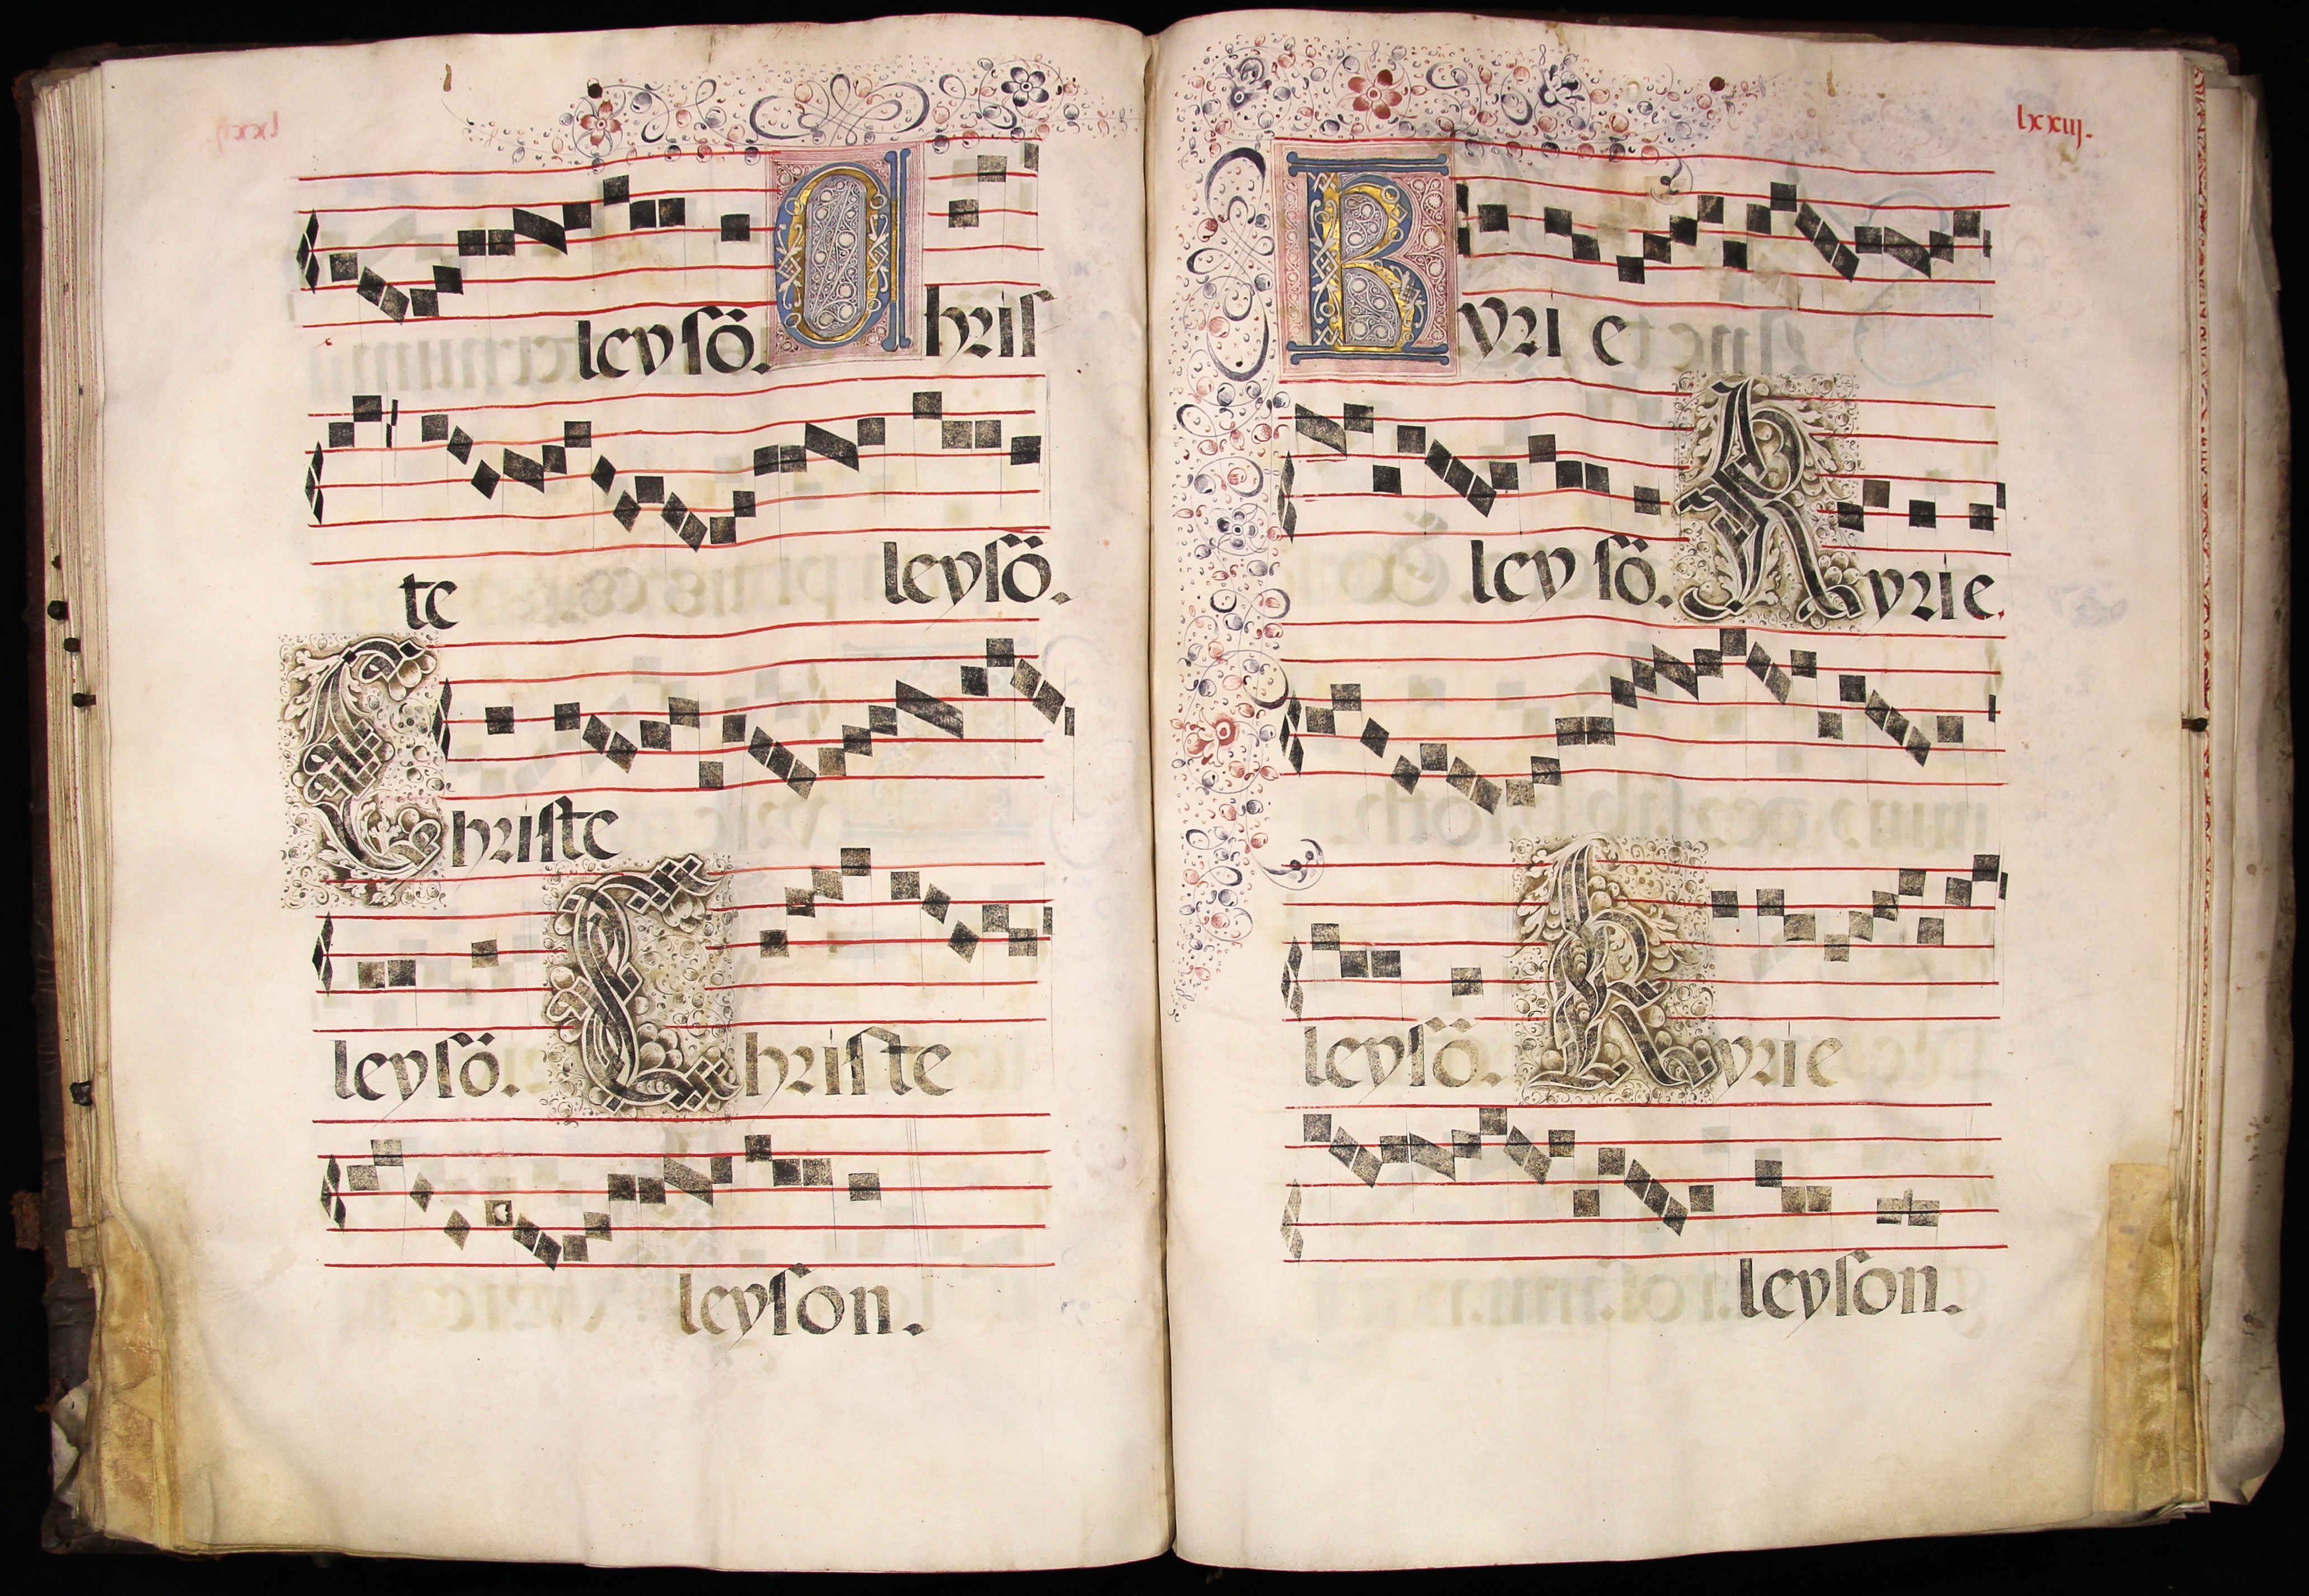 leysö. Chris
te leysö.
Christe
leysö. Christe
leyson.
lxxiij.
Kyrie
leysö. Kyrie.
leysö. Kyrie
leyson.